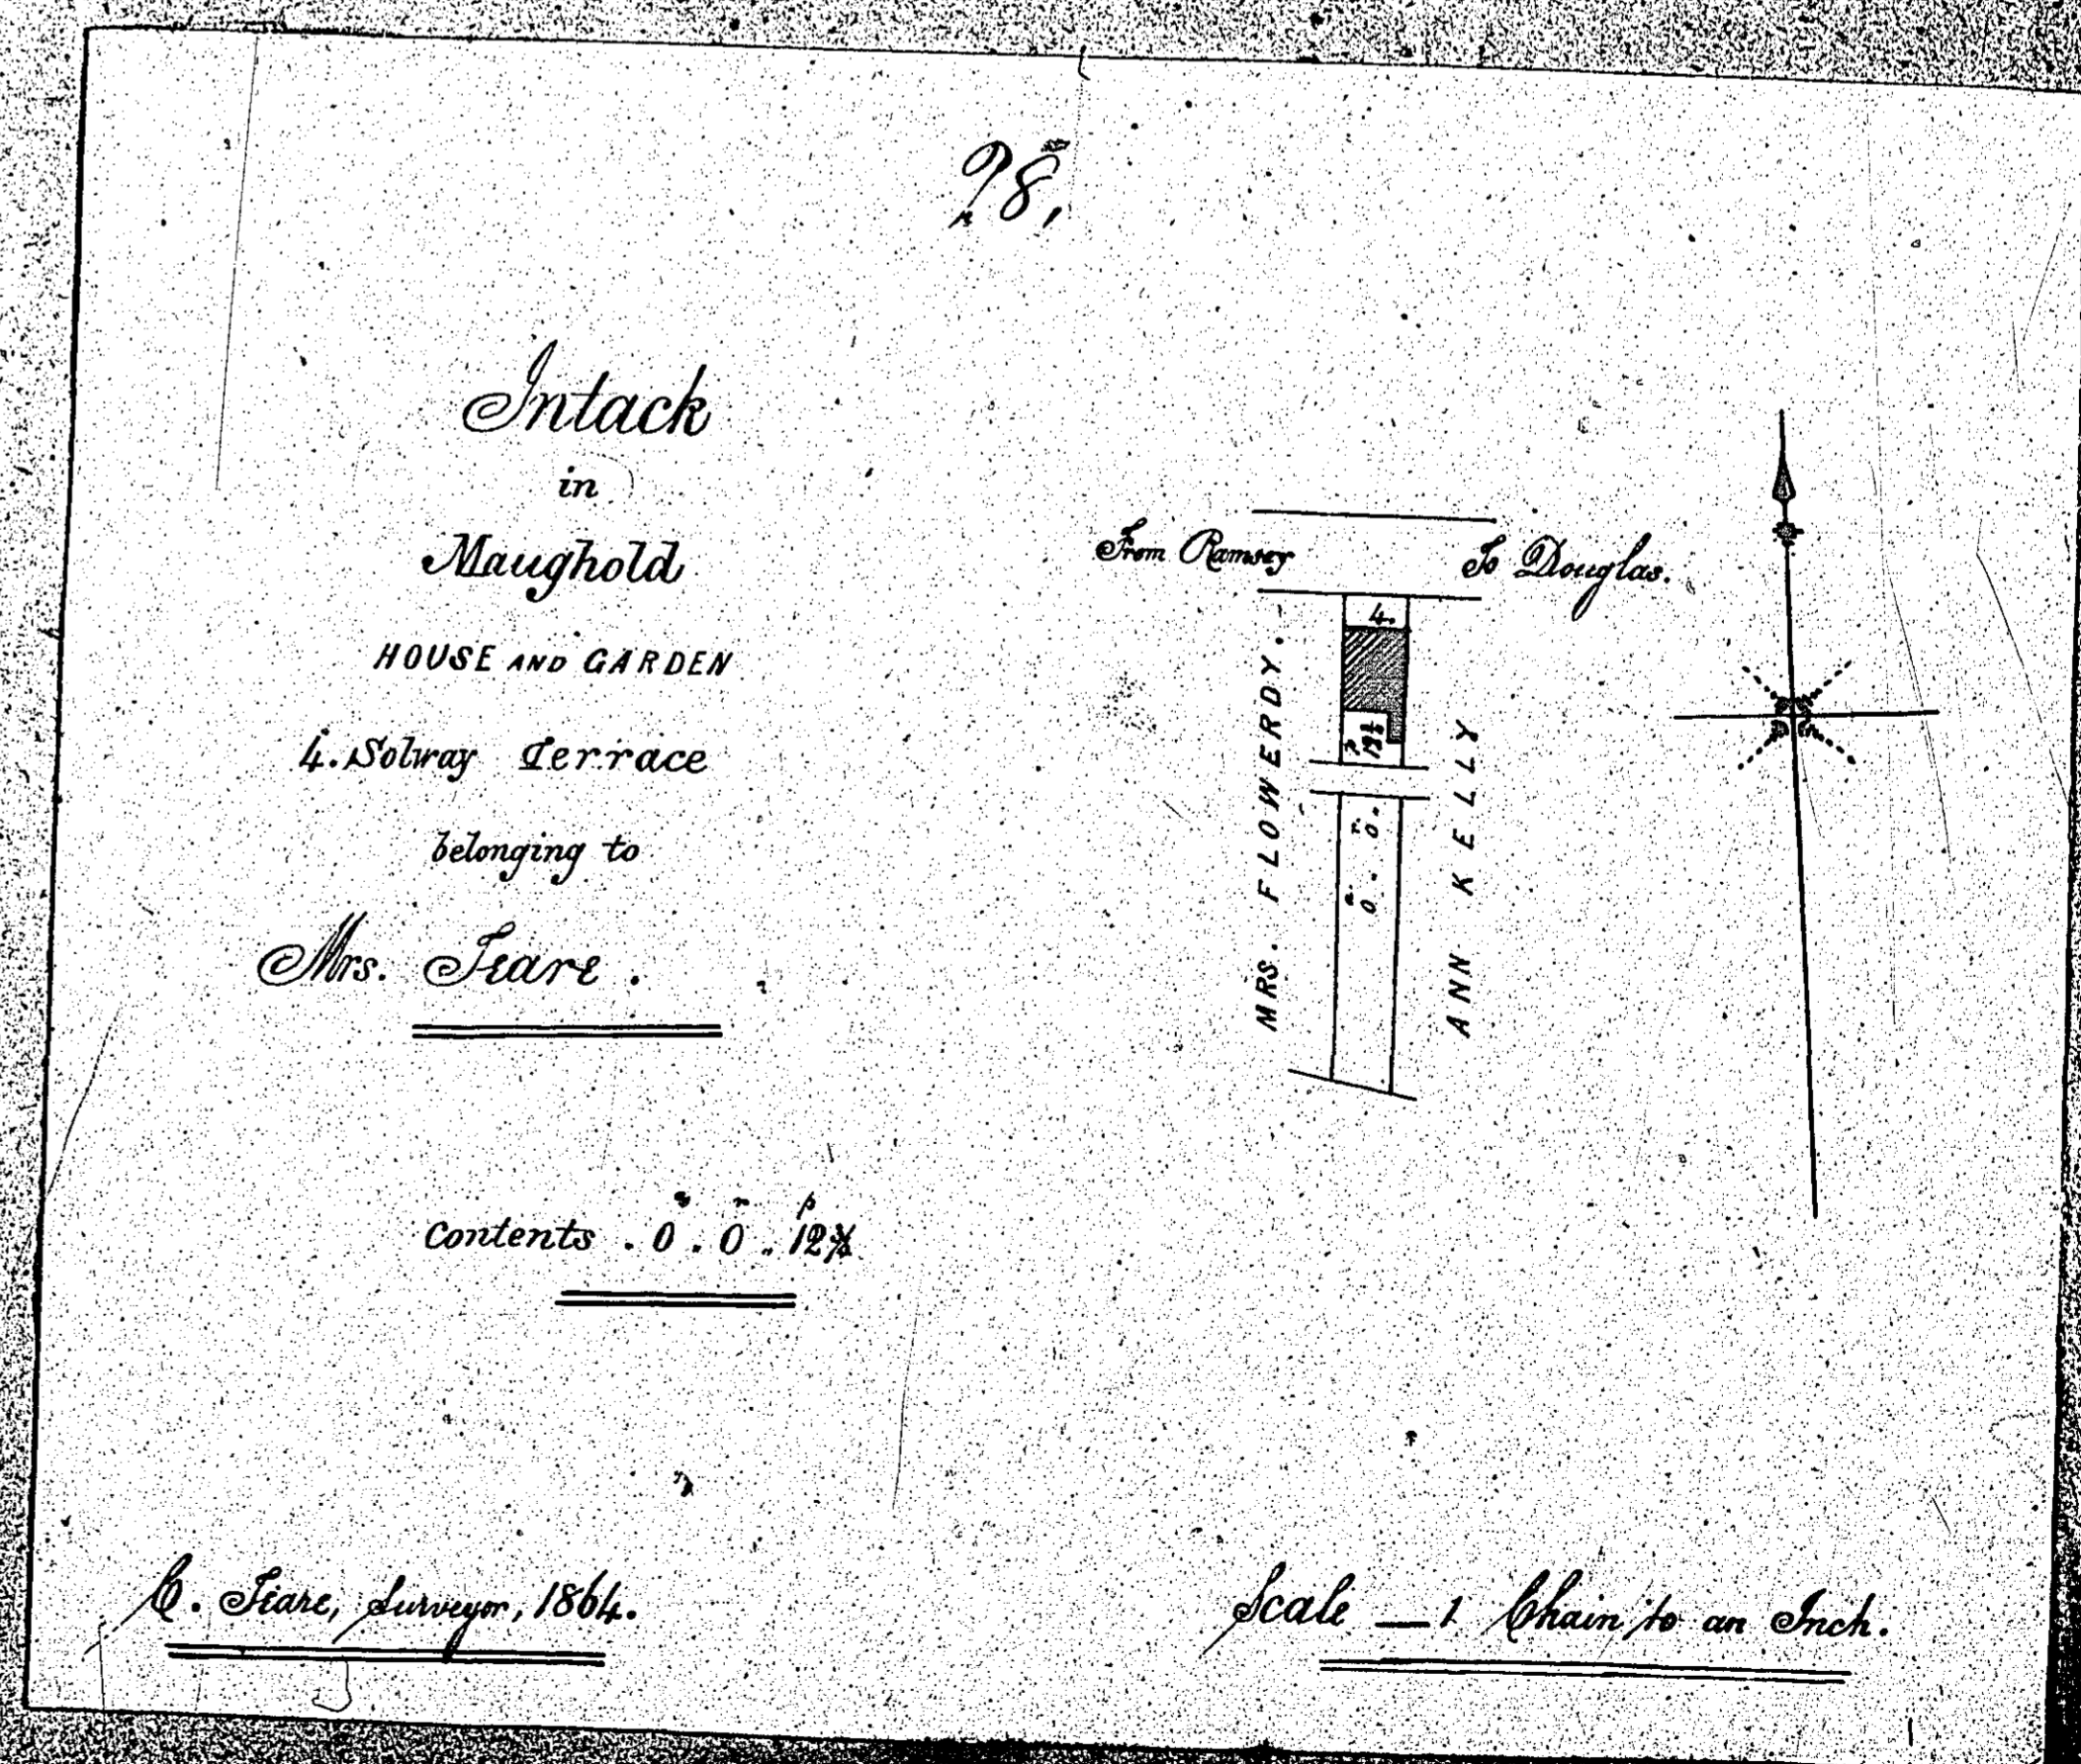 98,
Intack
in
Maughold
HOUSE AND GARDEN
4. Solway Terrace
belonging to
Mrs. Teare.
Contents . 0 . 0 .. 12¾
a r p
C. Teare, Surveyor, 1864.
From Ramsey
To Douglas.
4.
MRS. FLOWERDY.
ANN KELLY
a r p
0 . 0 .
Scale — 1 Chain to an Inch.